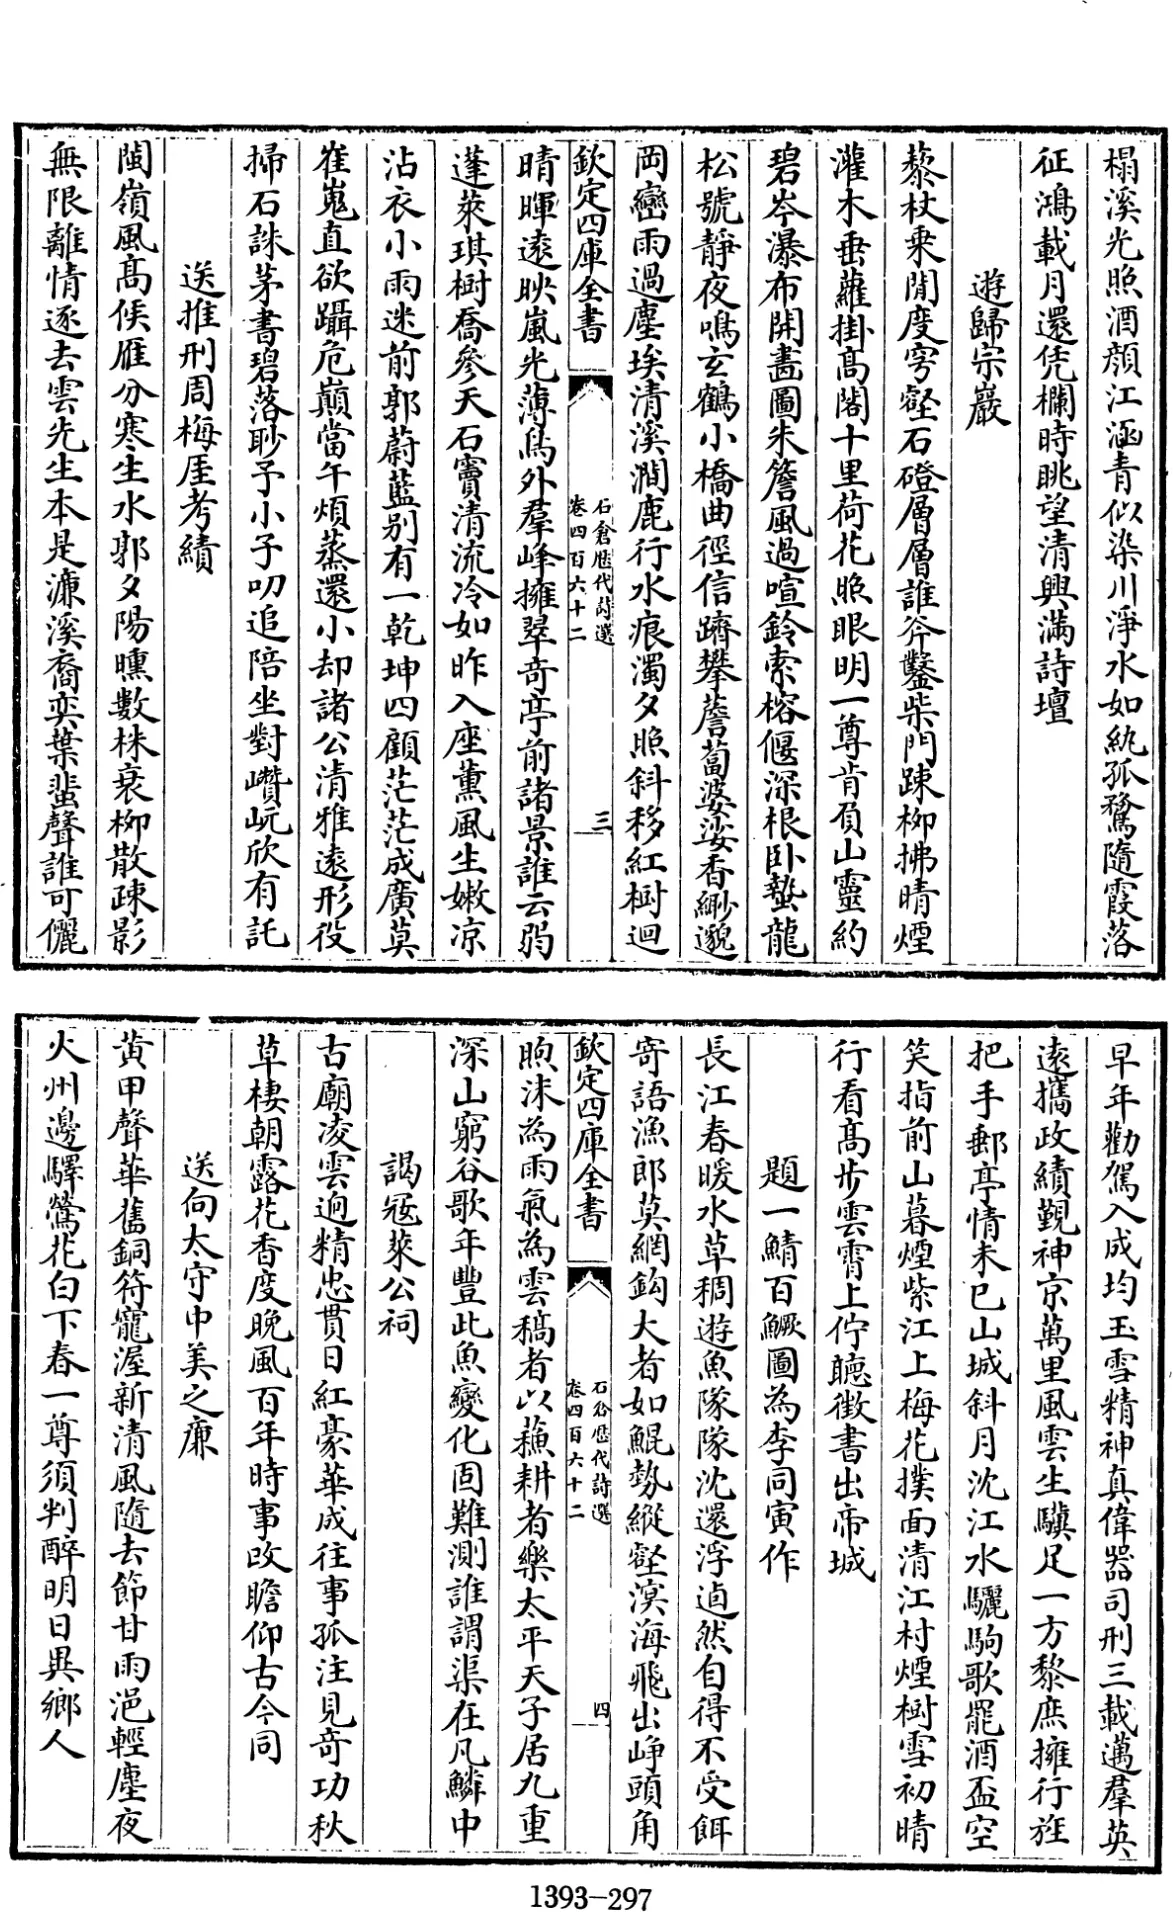 榻溪光照酒顔江涵青似染川淨水如紈孤鶩隨霞落
征鴻載月還凭欄時眺望清興滿詩壇
遊歸宗巖
藜杖乗閒度穹壑石磴層層誰斧鑿柴門踈柳拂晴煙
灌木垂蘿掛髙閣十里荷花照眼明一尊肯負山靈約
碧岑瀑布開畵圖朱簷風過喧鈴索榕偃深根卧蟄龍
松號靜夜鳴玄鶴小橋曲徑信躋攀薝蔔婆娑香緲邈
岡巒雨過塵埃清溪澗鹿行水痕濁夕照斜移紅樹迴
欽定四庫全書
石倉歷代詩選
卷四百六十二
三
晴暉遠映嵐光薄鳥外羣峰擁翠竒亭前諸景誰云弱
蓬萊琪樹喬參天石竇清流冷如昨入座薰風生嫩凉
沾衣小雨迷前郭蔚藍别有一乾坤四顧茫茫成廣莫
崔嵬直欲躡危巔當午煩蒸還小却諸公清雅遠形役
掃石誅茅書碧落眇予小子叨追陪坐對巑岏欣有託
送推刑周梅厓考績
閩嶺風髙候雁分寒生水郭夕陽曛數株衰柳散踈影
無限離情逐去雲先生本是濂溪裔奕葉蜚聲誰可儷
早年勸駕入成均玉雪精神真偉器司刑三載邁羣英
遠攜政績覲神京萬里風雲生驥足一方黎庶擁行旌
把手郵亭情未已山城斜月沈江水驪駒歌罷酒盃空
笑指前山暮煙紫江上梅花撲面清江村煙樹雪初晴
行看髙步雲霄上佇聽徴書出帝城
題一鯖百鱖圖為李同寅作
長江春暖水草稠遊魚隊隊沈還浮逌然自得不受餌
寄語漁郎莫網鈎大者如鯤勢縱壑溟海飛出崢頭角
欽定四庫全書
石倉歷代詩選
卷四百六十二
四
喣沫為雨氣為雲稿者以蘓耕者樂太平天子居九重
深山窮谷歌年豐此魚變化固難測誰謂渠在凡鱗中
謁冦萊公祠
古廟凌雲逈精忠貫日紅豪華成往事孤注見竒功秋
草棲朝露花香度晚風百年時事改瞻仰古今同
送向太守中美之廉
黄甲聲華舊銅符寵渥新清風隨去節甘雨浥輕塵夜
火州邊驛鶯花白下春一尊須判醉明日異鄉人
1393-297